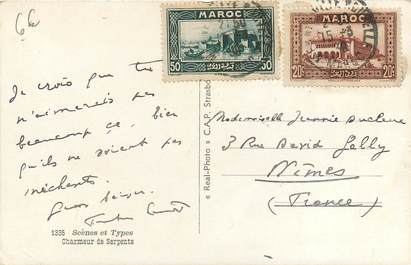 MAROC
50
50
MAROC
20c
20c
Je crois que tu
n'aimerais pas
beaucoup ça, bien
qu'ils ne soient pas
méchants.
Gros baisers
1335 Scènes et Types
Charmeur de Serpents
« Real-Photo » C.A.P. Strasbo
Mademoiselle
3 Rue David
Nîmes
(France)